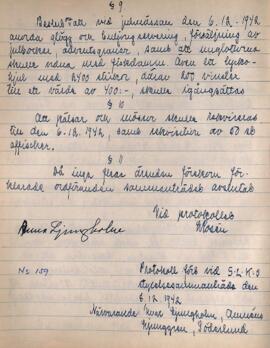 § 9
Beslöts att vid julmässan den 6.12.1942
anorda glögg och buljongservering, försäljning av
julböcker, adventsgranar, samt att ungflottorna
skulle sälja med fiskdamm. Även ett lycko-
hjul med 2400 stickor, därav 200 vinster
till ett värde av 400:-, skulle igångsättas
§ 10
Att pälsar och mössor skulle rekvireras
till den 6.12.1942, samt rekvisition av 50 st
affischer.
§ 11
Då inga flera ärenden förekom för-
klarade ordföranden sammanträdet avslutat
Vid protokollet
Anna Ljungholm
No 159
Protokoll fört vid S.L.K.S
styrelsesammanträde den
6.12.1942
Närvarande: Ljungholm,
Ljunggren, Söderlund